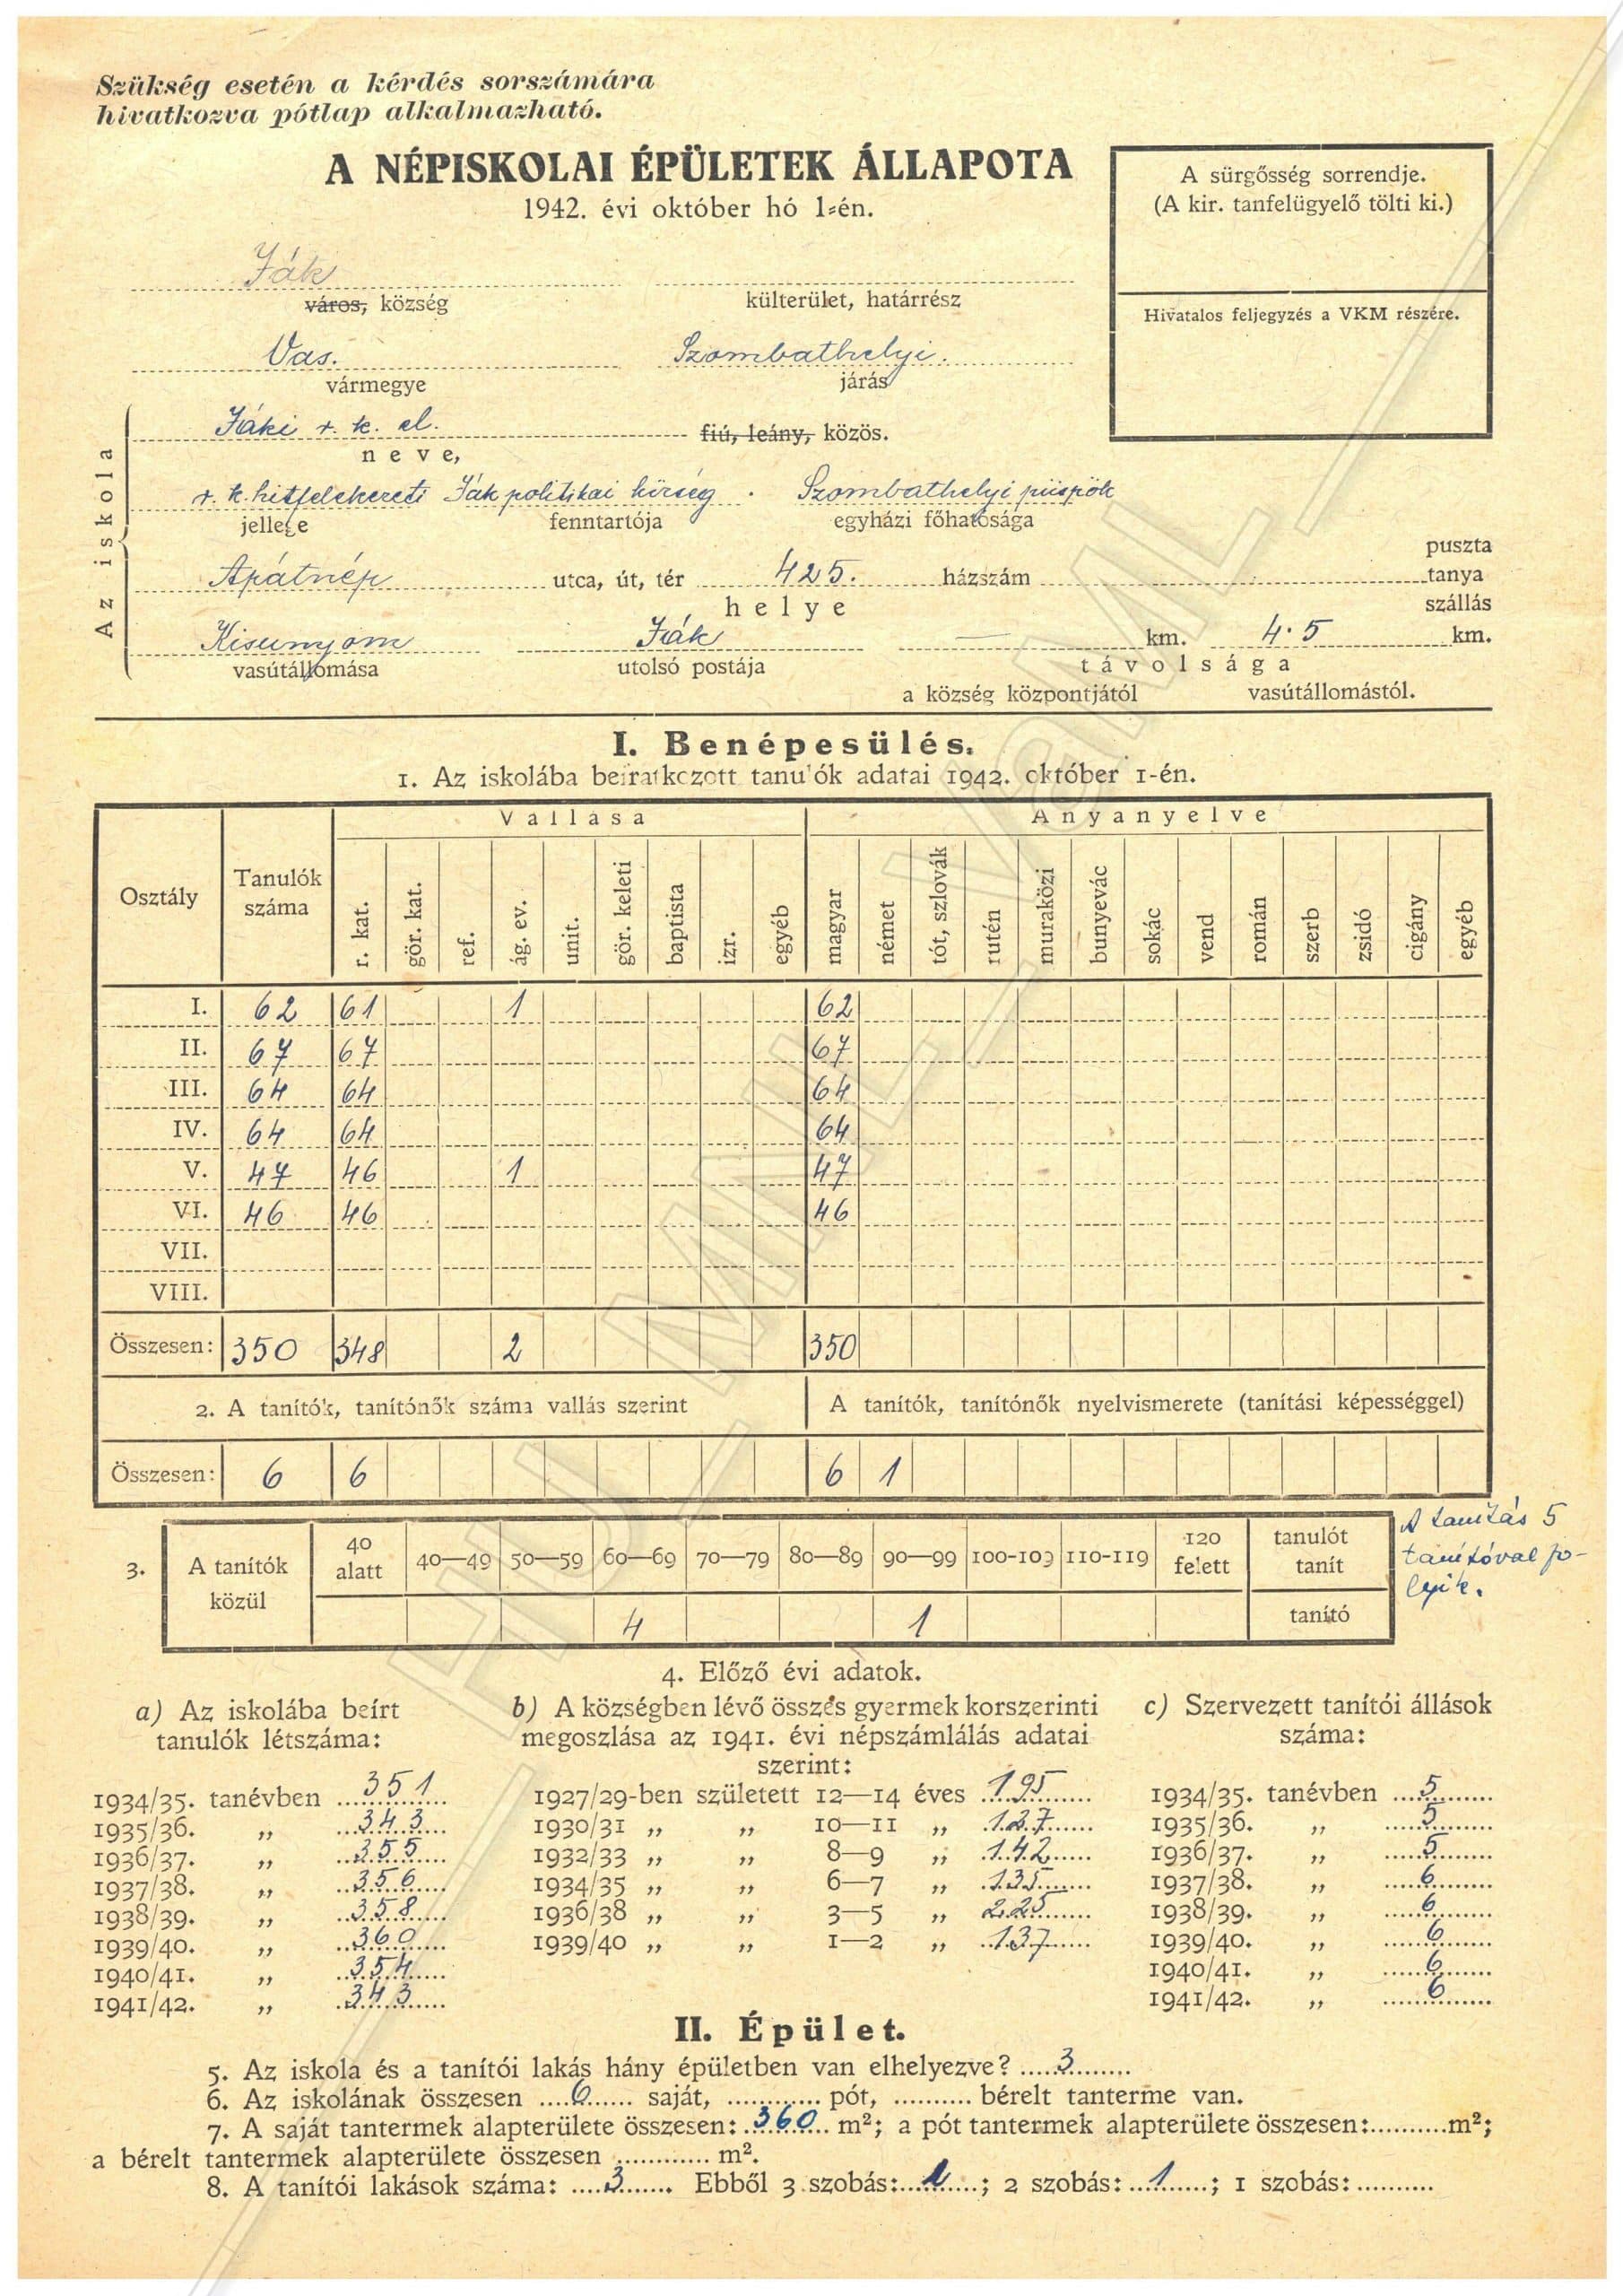 Szükség esetén a kérdés sorszámára
hivatkozva pótlap alkalmazható.
A NÉPISKOLAI ÉPÜLETEK ÁLLAPOTA
1942. évi október hó 1-én.
A sürgősség sorrendje.
(A kir. tanfelügyelő tölti ki.)
Hivatalos feljegyzés a VKM részére.
Ják
város, község külterület, határrész
Vas. Szombathelyi.
vármegye járás
Az iskola
Jáki r. k. el. fiú, leány, közös.
neve,
r. k. hitfelekezeti Ják politikai község . Szombathelyi püspök
jellege fenntartója egyházi főhatósága
puszta
Apátnép utca, út, tér 425. házszám tanya
helye szállás
Kisunyom Ják — km. 4·5 km.
vasútállomása utolsó postája távolsága
a község központjától vasútállomástól.
I. Benépesülés.
1. Az iskolába beiratkozott tanulók adatai 1942. október 1-én.
Osztály Tanulók száma Vallása Anyanyelve
r. kat. gör. kat. ref. ág. ev. unit. gör. keleti baptista izr. egyéb magyar német tót, szlovák rutén muraközi bunyevác sokác vend román szerb zsidó cigány egyéb
I. 62 61 1 62
II. 67 67 67
III. 64 64 64
IV. 64 64 64
V. 47 46 1 47
VI. 46 46 46
VII.
VIII.
Összesen: 350 348 2 350
2. A tanítók, tanítónők száma vallás szerint A tanítók, tanítónők nyelvismerete (tanítási képességgel)
Összesen: 6 6 6 1
3. A tanítók közül 40 alatt 40—49 50—59 60—69 70—79 80—89 90—99 100-109 110-119 120 felett tanulót tanít
4 1 tanító
A tanítás 5
tanítóval fo-
lyik.
4. Előző évi adatok.
a) Az iskolába beírt
tanulók létszáma:
1934/35. tanévben 351
1935/36. „ 343
1936/37. „ 355
1937/38. „ 356
1938/39. „ 358
1939/40. „ 360
1940/41. „ 354
1941/42. „ 343
b) A községben lévő összes gyermek korszerinti
megoszlása az 1941. évi népszámlálás adatai
szerint:
1927/29-ben született 12—14 éves 195
1930/31 „ „ 10—11 „ 137
1932/33 „ „ 8—9 „ 142
1934/35 „ „ 6—7 „ 135
1936/38 „ „ 3—5 „ 225
1939/40 „ „ 1—2 „ 137
c) Szervezett tanítói állások
száma:
1934/35. tanévben 5
1935/36. „ 5
1936/37. „ 5
1937/38. „ 6
1938/39. „ 6
1939/40. „ 6
1940/41. „ 6
1941/42. „ 6
II. Épület.
5. Az iskola és a tanítói lakás hány épületben van elhelyezve? 3
6. Az iskolának összesen 6 saját, pót, bérelt tanterme van.
7. A saját tantermek alapterülete összesen: 360 m²; a pót tantermek alapterülete összesen: m²;
a bérelt tantermek alapterülete összesen m².
8. A tanítói lakások száma: 3. Ebből 3 szobás: ; 2 szobás: 1; 1 szobás:
HU_MNL_VaML_